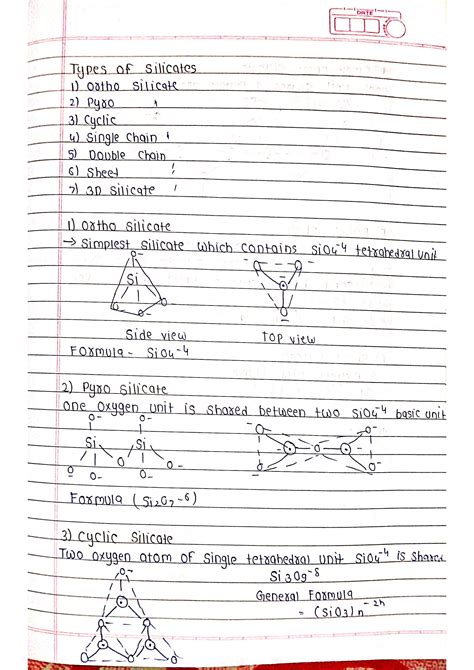 DATE
Types of Silicates
1) Ortho Silicate
2) Pyro "
3) Cyclic
4) Single Chain "
5) Double Chain
6) Sheet "
7) 3D Silicate "
1) Ortho Silicate
→ Simplest silicate which contains SiO4-4 tetrahedral unit
O-
Si
O-
O-
O-
O-
O-
O
O-
Side view
Top view
Formula - SiO4-4
2) Pyro Silicate
One oxygen unit is shared between two SiO4-4 basic unit
O- O-
Si Si
O- O- O O- O-
O- O- O O- O-
Formula (Si2O7-6)
3) Cyclic Silicate
Two oxygen atom of Single tetrahedral unit SiO4-4 is shared
O-
Si3O9-6
General Formula
= (SiO3)n-2n
O- O O-